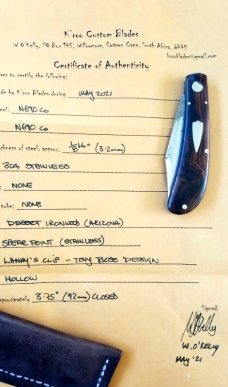 K'roo Custom Blades
W O'Kelly, PO Box 945, Willowmore, Eastern Cape, South Africa, 6445
krooblades@gmail.com
Certificate of Authenticity
es to certify the following:
de by K'roo Blades during MAY 2021
eel: N690 Co
N690 Co
ckness of steel: approx. (3.2mm)
304 STAINLESS
s: NONE
tube: NONE
DESERT IRONWOOD (ARIZONA)
SPEAR POINT (STAINLESS)
LANNY'S CLIP - TONY BOSE DESIGN
HOLLOW
pproximately 3.75" (92mm) CLOSED
Signed:
W. O'KELLY
MAY '21